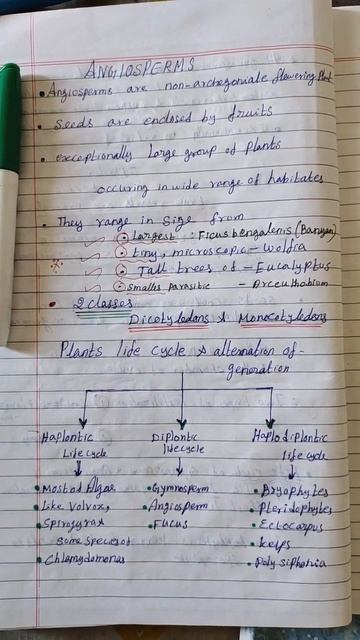 ANGIOSPERMS
• Angiosperms are non-archegoniate flowering Plant
• Seeds are enclosed by fruits
• exceptionally large group of Plants
occuring in wide range of habitates
• They range in size from
① Largest : Ficus bengalenis (Banyan)
② tiny, microscopic - Wolfia
③ Tall trees of - Eucalyptus
④ Smalls parasitic - Arceuthobium
• 2 classes
Dicotyledons & Monocotyledons
Plants life cycle & alternation of-
generation
Haplontic Life cycle
• Most of Algae
• Like Volvox,
• Spirogyra &
some species of
• Chlamydomonas
Diplontic lifecycle
• Gymnosperm
• Angiosperm
• Fucus
Haplodiplontic life cycle
• Bryophytes
• Pteridophytes
• Ectocarpus
• kelps
• Polysiphonia